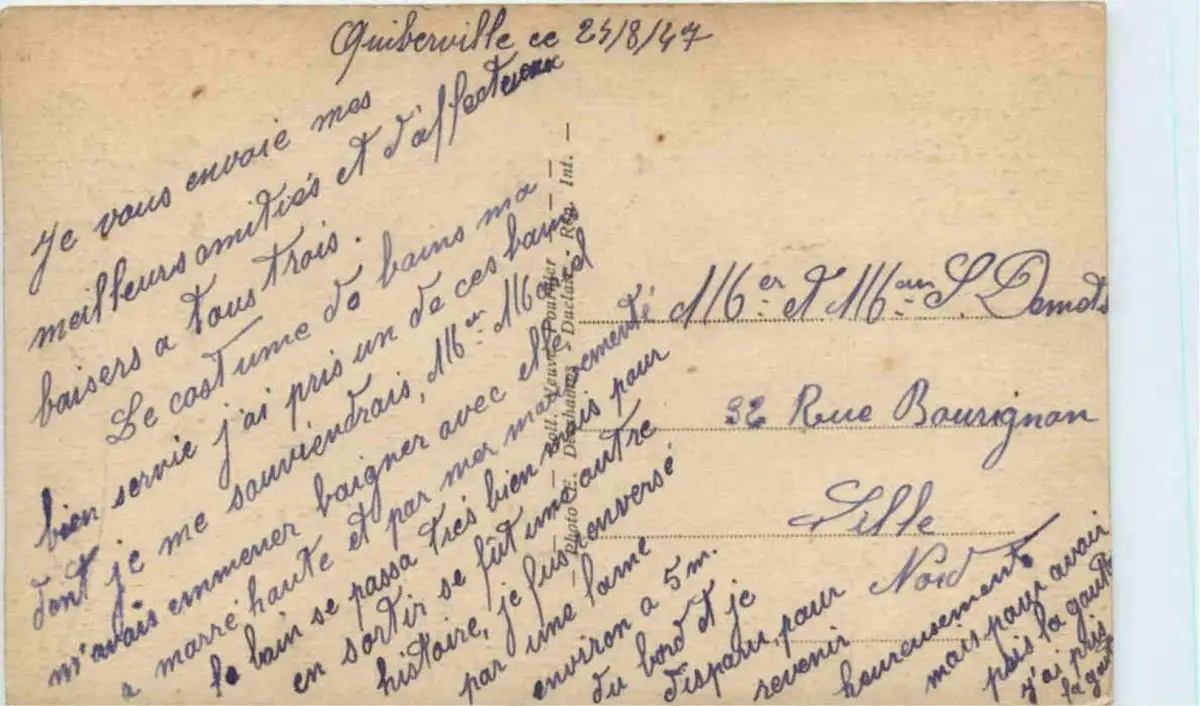 Quiberville ce 25/8/47
Je vous envoie mes
meilleurs amitiés et d'affectueux
baisers a tous trois.
Le costume de bains ma
bien servie j'ai pris un de ces bains
dont je me souviendrais, Mer
m'avais emmener baigner avec elle
a marré haute et par mer mouvementé
le bain se passa très bien mais pour
en sortir se fût une autre
histoire, je fus renversé
par une lame
environ a 5 m.
du bord et je
disparu, pour
revenir
heureusement
mais pour avoir
pris la goutte
j'ai pris
la goutte
Mer et Mam S. Demots
32 Rue Bourignon
Lille
Nord
Photo E. Deschamps - Duclair - Rég. Int. —
— Coll. Veuve Pournier —